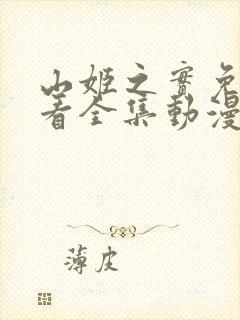 山姬之實免
看全集動漫
薄皮